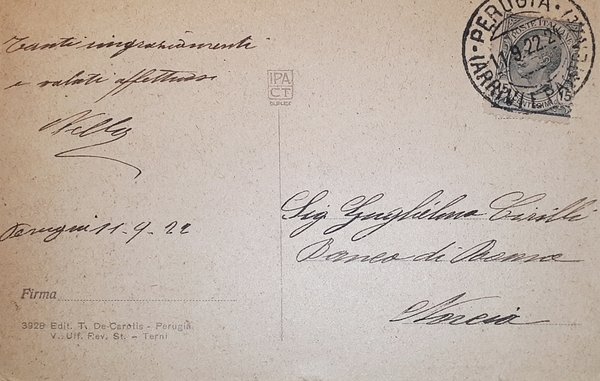 Tanti ringraziamenti
e saluti affettuosi
Nelly
Perugia 11-9-22
Firma
3929 Edit. T. De-Carolis - Perugia
V. Uff. Rev. St. - Terni
IPA
CT
DUPLEX
PERUGIA
11.9.22.2
(ARRIVI E PA
POSTE ITALIANE
15
Sig Guglielmo Cirilli
Banco di Roma
Norcia